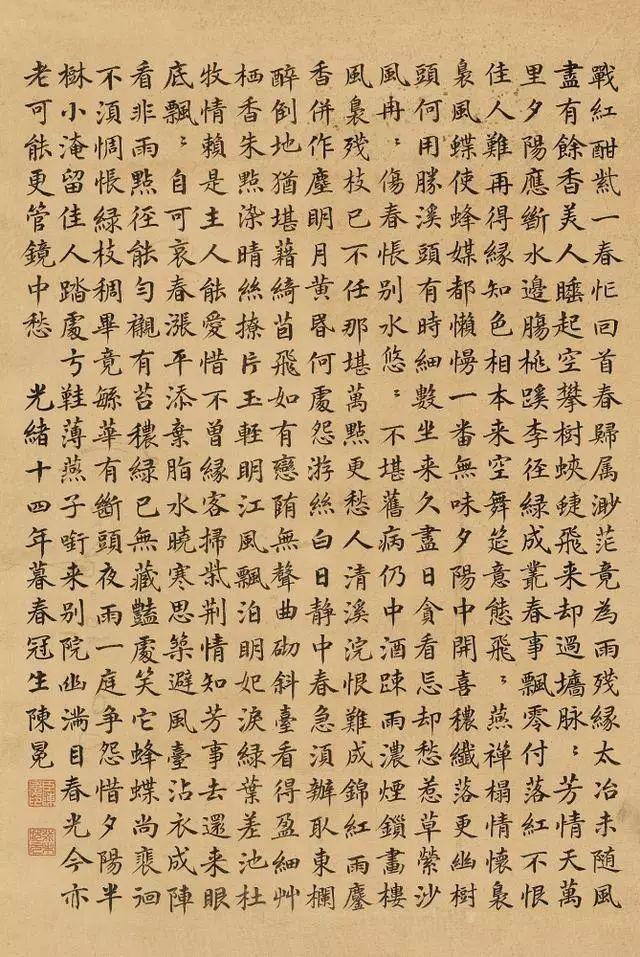 戰紅酣紫一春忙回首春歸属渺茫竟為雨殘緣太冶未随風
盡有餘香美人睡起空攀樹蛺蝶飛来却過墻脉〻芳情天萬
里夕陽應斷水邊膓桃蹊李徑緑成叢春事飄零付落紅不恨
佳人難再得緣知色相本来空舞筵意態飛〻燕禅榻情懷裊
裊風蝶使蜂媒都懶慢一番無味夕陽中開喜穠纖落更幽樹
頭何用勝溪頭有時細數坐来久盡日貪看忘却愁惹草縈沙
風冉〻傷春悵別水悠〻不堪舊病仍中酒踈雨濃煙鎖畫樓
風裊殘枝已不任那堪萬點更愁人清溪浣恨難成錦紅雨鏖
香併作塵明月黄昏何處怨游絲白日静中春急湏辦取東欄
醉倒地猶堪藉綺茵飛如有戀陏無聲曲砌斜臺看得盈細艸
栖香朱點染晴絲撩片玉輕明江風飄泊明妃淚緑葉差池杜
牧情賴是主人能愛惜不曾緣客掃紫荆情知芳事去還来眼
底飄〻自可哀春漲平添棄脂水曉寒思築避風臺沾衣成陣
看非雨點徑能勻襯有苔穠緑已無藏豔處笑它蜂蝶尚裵徊
不湏惆悵緑枝稠畢竟緐華有斷頭夜雨一庭争怨惜夕陽半
樹小淹留佳人踏處弓鞋薄燕子啣来別院幽滿目春光今亦
老可能更管鏡中愁 光緒十四年暮春冠生陳冕